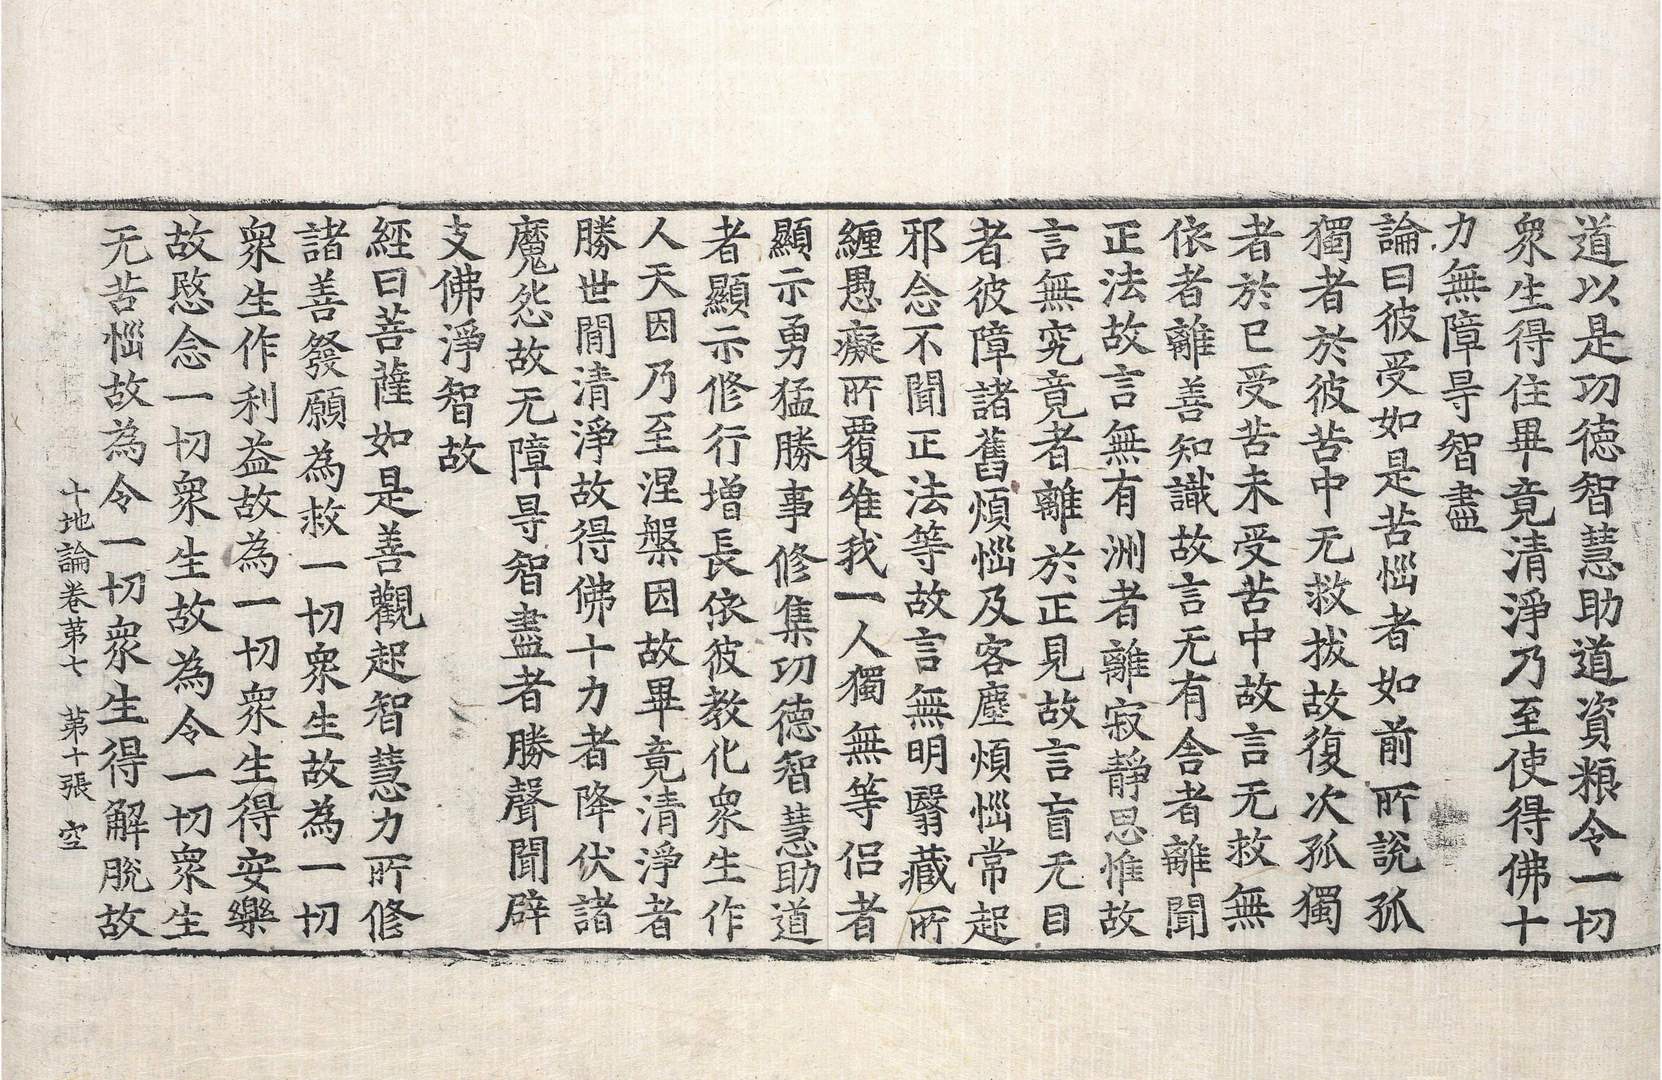 道以是功徳智慧助道資粮令一切
衆生得住畢竟清淨乃至使得佛十
力無障㝵智盡
論曰彼受如是苦惱者如前所說孤
獨者於彼苦中无救拔故復次孤獨
者於已受苦未受苦中故言无救無
依者離善知識故言无有舍者離聞
正法故言無有洲者離寂靜思惟故
言無究竟者離於正見故言盲无目
者彼障諸舊煩惱及客塵煩惱常起
邪念不聞正法等故言無明翳藏所
纏愚癡所覆唯我一人獨無等侶者
顯示勇猛勝事修集功德智慧助道
者顯示修行增長依彼教化衆生作
人天因乃至涅槃因故畢竟清淨者
勝世間清淨故得佛十力者降伏諸
魔怨故无障㝵智盡者勝聲聞辟
支佛淨智故
經曰菩薩如是善觀起智慧力所修
諸善發願為救一切衆生故為一切
衆生作利益故為一切衆生得安樂
故愍念一切衆生故為令一切衆生
无苦惱故為令一切衆生得解脫故
十地論卷苐七 苐十張 空